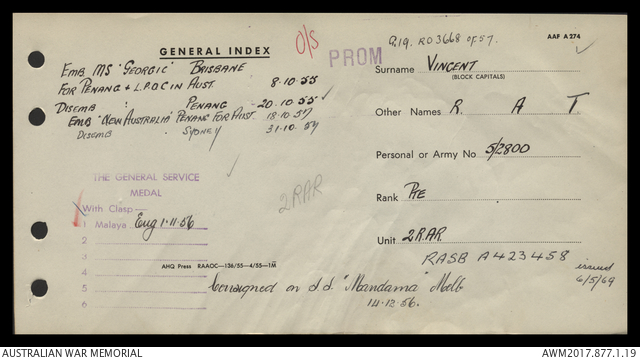 GENERAL INDEX
O/S
PROM
9.19. RO3668 of 57.
AAF A 274
EMB MS "GEORGIC" BRISBANE
FOR PENANG & L.P.O.C IN AUST. 8-10-55
DISEMB : PENANG -20.10.55
EMB "NEW AUSTRALIA" PENANG FOR AUST. 18.10.57
DISEMB SYDNEY 31.10.57
Surname VINCENT
(BLOCK CAPITALS)
Other Names R. A T
Personal or Army No 5/2800
Rank PTE
Unit 2RAR.
RASB A423458
issued
6/5/69
THE GENERAL SERVICE
MEDAL
With Clasp—
1 Malaya Eng 1-11-56
2
3
4
5
6
2RAR
AHQ Press RAAOC—136/55—4/55—1M
Consigned on s.s. "Mandama" Melb
14.12.56.
AUSTRALIAN WAR MEMORIAL
AWM2017.877.1.19